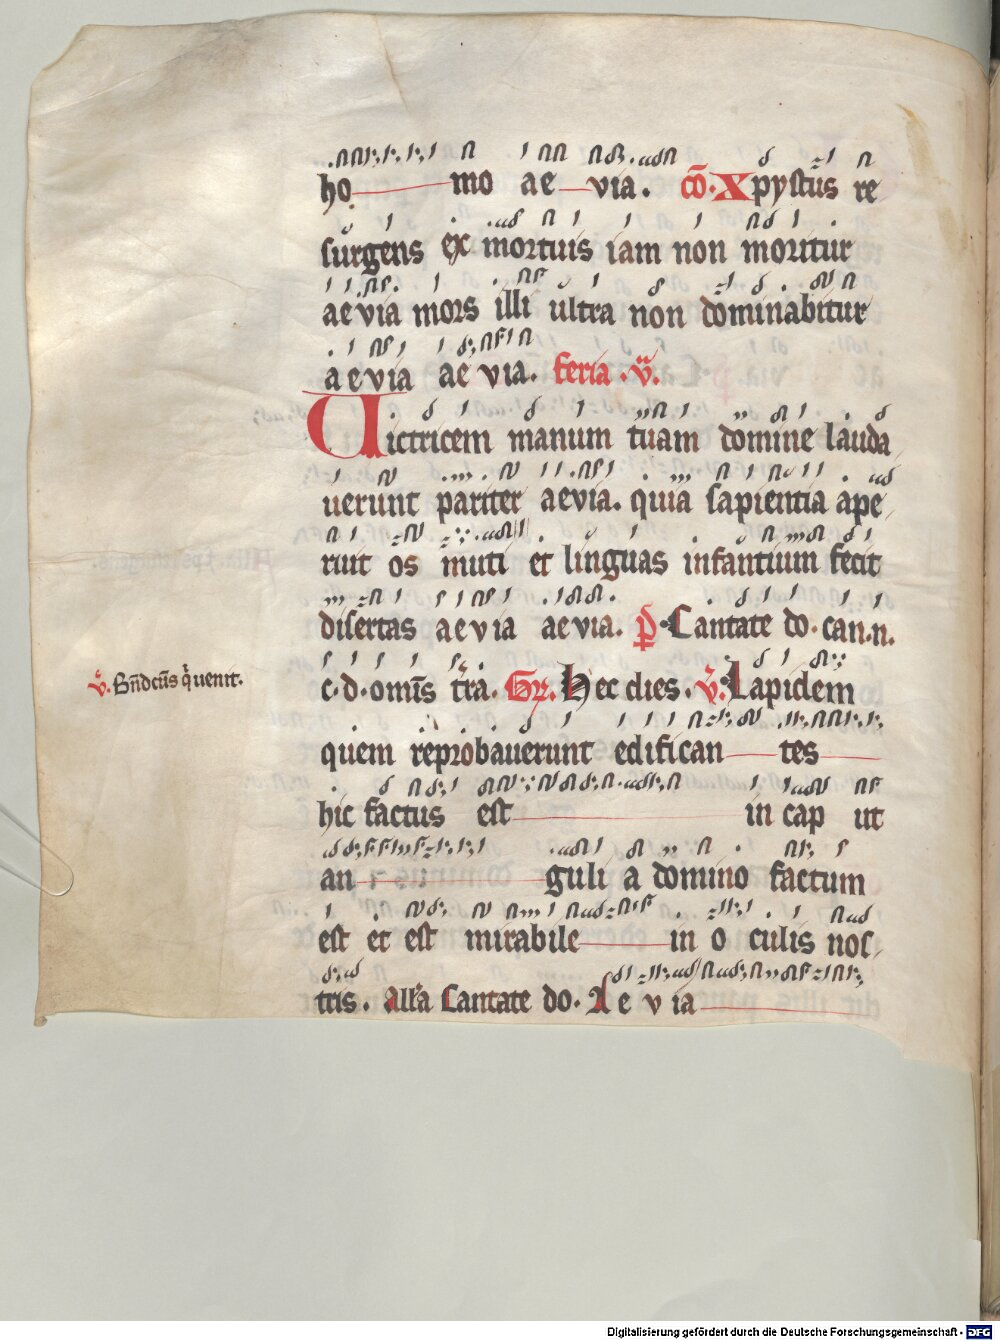 ho mo ae via. cō. Xpystus re
surgens ex mortuis iam non moritur
aevia mors illi ultra non dominabitur
aevia aevia. feria .v̄.
Victricem manum tuam domine lauda
uerunt pariter aevia. quia sapientia ape
ruit os muti et linguas infantium fecit
disertas aevia aevia. p̄ Cantate do. can.n.
c.d. omīs tr̄a. Gr. Hec dies. v̄. Lapidem
v̄. Bn̄dc̄us q̄ uenit.
quem reprobauerunt edifican tes
hic factus est in cap ut
an guli a domino factum
est et est mirabile in o culis nos
tris. all'a Cantate do. Ae v ia
Digitalisierung gefördert durch die Deutsche Forschungsgemeinschaft - DFG